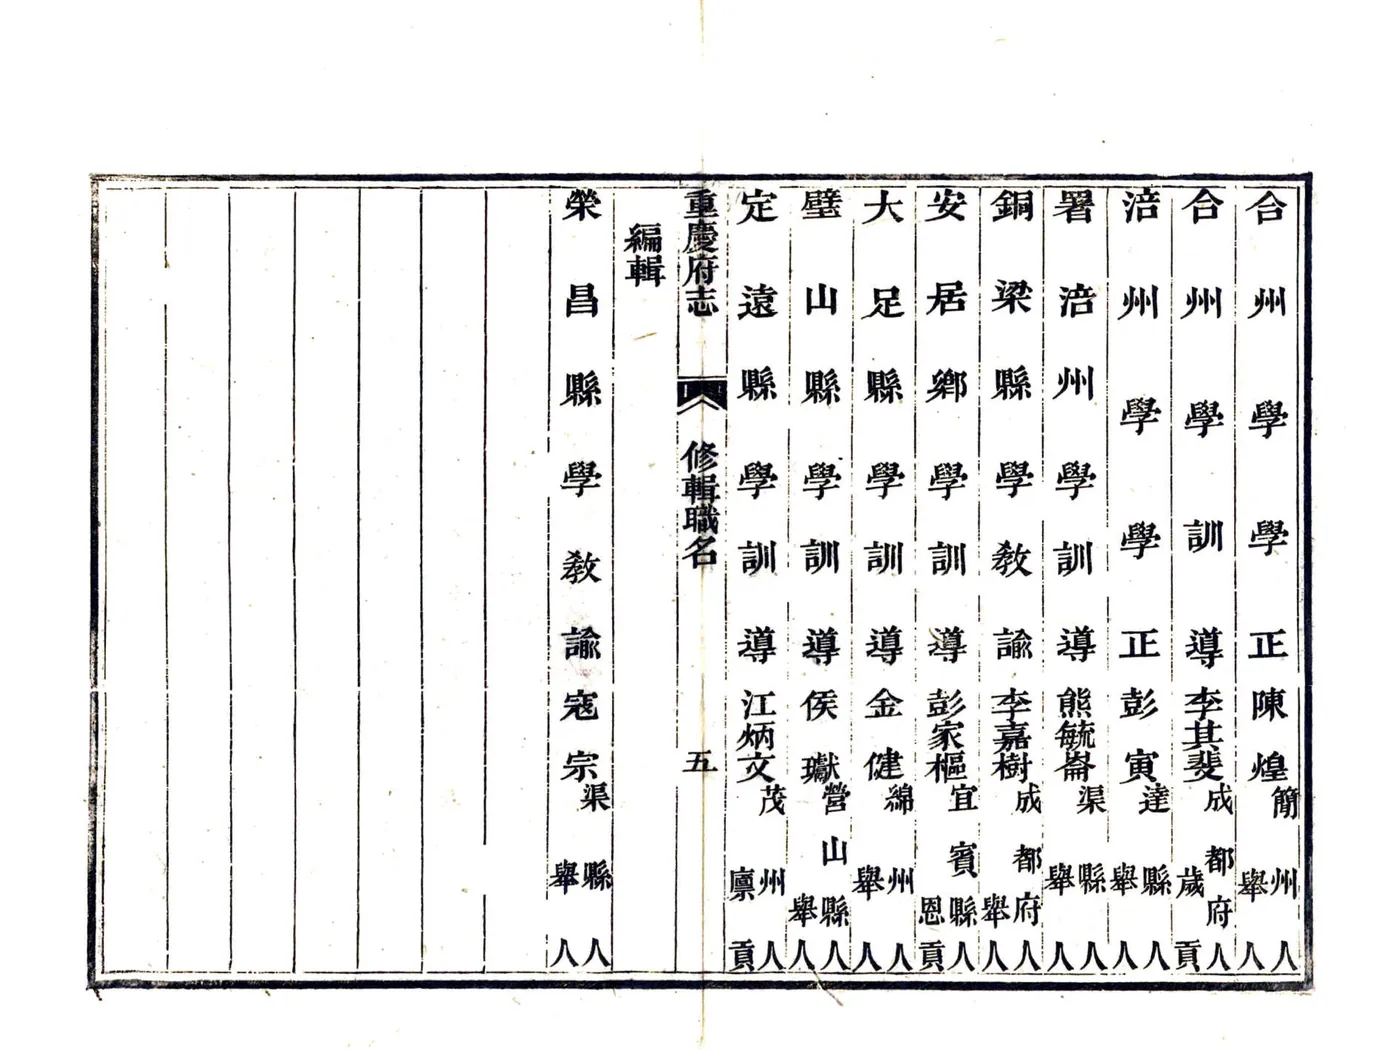 合州學學正陳煌簡州人舉人
合州學訓導李其斐成都府人歲貢
涪州學學正彭寅達縣人舉人
署涪州學訓導熊毓崙渠縣人舉人
銅梁縣學教諭李嘉樹成都府人舉人
安居鄉學訓導彭家樞宜賓縣人恩貢
大足縣學訓導金健綿州人舉人
璧山縣學訓導侯瓛營山縣人舉人
定遠縣學訓導江炳文茂州人廩貢
重慶府志 修輯職名 五
編輯
榮昌縣學教諭寇宗渠縣人舉人